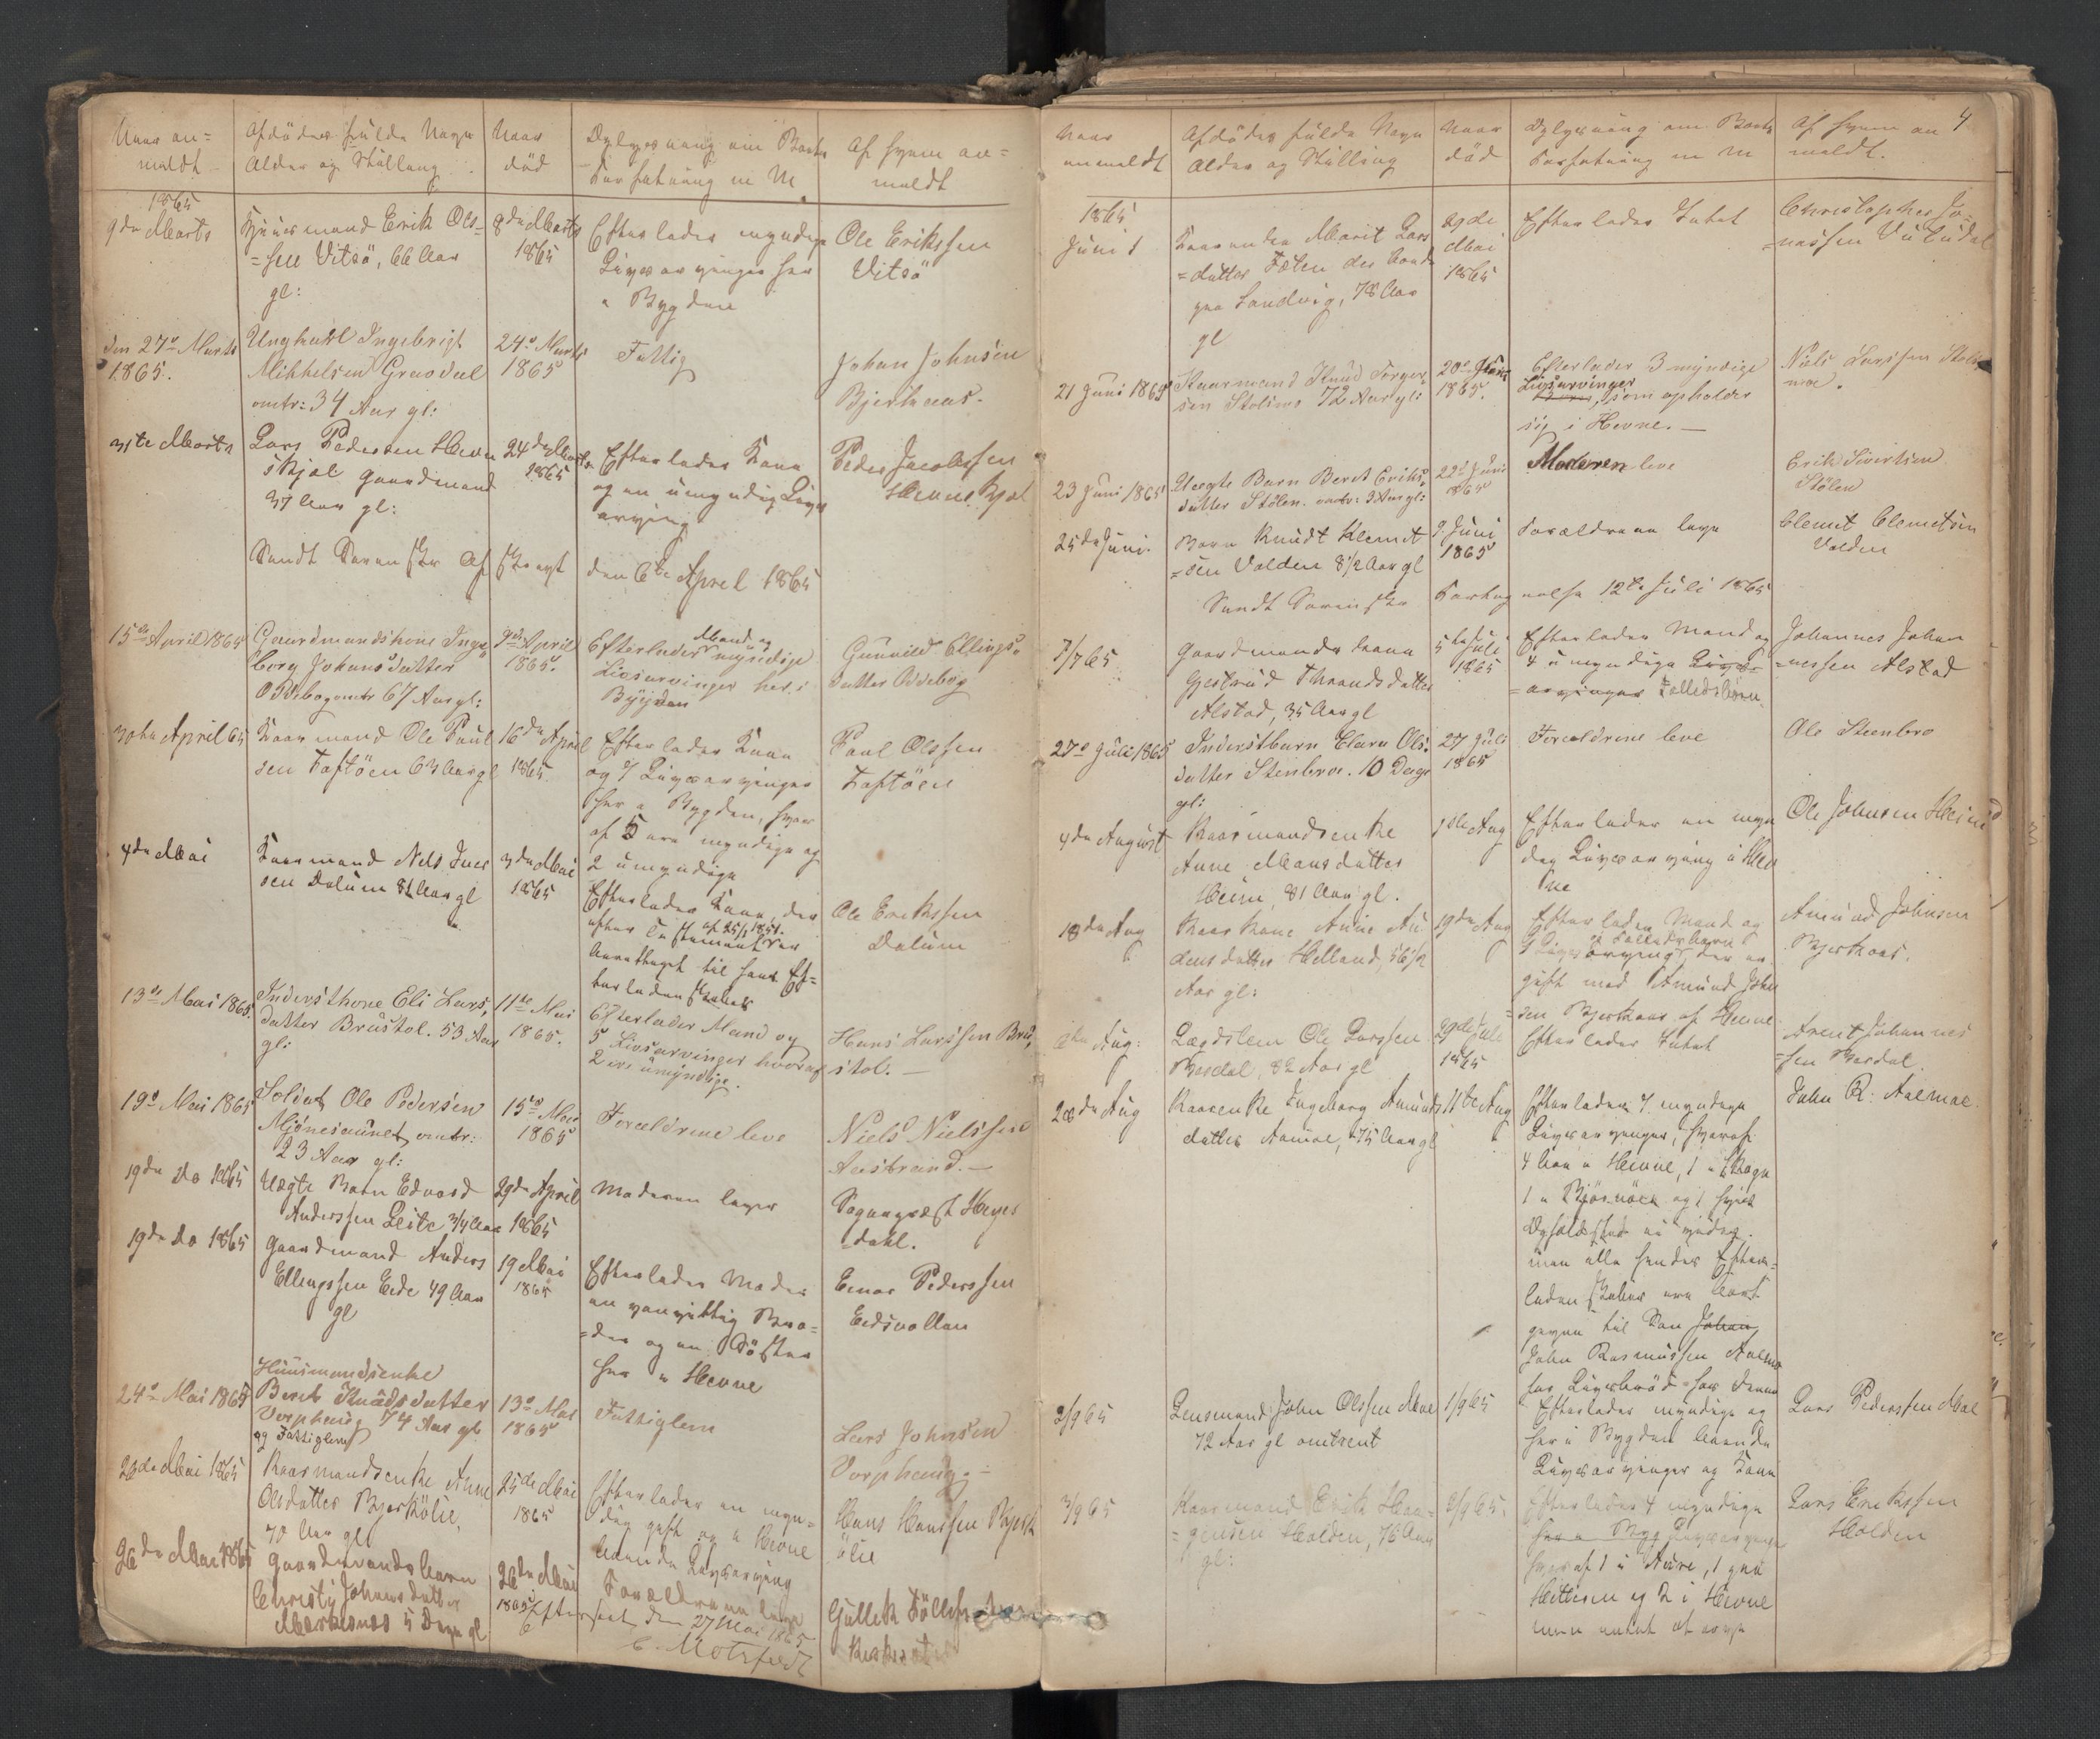 Naar an=
meldt
Afdödes fulde Navn
Alder og Stilling
Naar
död
Oplysning om Boets
Forfatning m M
Af hvem an=
meldt
1865
9de Marts
Huusmand Erik Ols=
=sen Vitsö, 66 Aar
gl:
8de Marts
1865
Efterlader myndige
Livsarvinger her
i Bygden
Ole Erikssen
Vitsö
den 27de Marts
1865.
Ungkarl Ingebrigt
Mikkelsen Graodal
omtr: 34 Aar gl:
24de Marts
1865
Fattig
Johan Johnsen
Bjerkaas.
31te Marts
Lars Pedersen Hevne
skjæl gaardmand
37 Aar gl:
24de Marts
1865
Efterlader Kone
og en umyndig Livs
arving
Peder Jacobssen
Hevneskjæl
Sendt Sorenskr
den 6te April 1865
15de April 1865
Gaardmandskone Inge
borg Johansdatter
Oddebog omtr 67 Aar gl:
9de April
1865.
Efterlader Mand og myndige
Livsarvinger her i
Bygden
Gunild Ellings
datter Oddebog
30te April 65
Kaarmand Ole Paul
sen Taftöen 63 Aar gl
16de April
1865.
Efterlader Kone
og 7 Livsarvinger
her i Bygden, hvor
af 5 ere myndige og
2 umyndige
Paul Olssen
Taftöen
4de Mai
Kaarmand Nels Iver
sen Dalum 82 Aar gl
3de Mai
1865
Efterlader Kone, der
efter Testament af 25/1 1851. er
berettiget til hans Ef=
terladenskaber
Ole Erikssen
Dalum
13de Mai 1865.
Inderstkone Eli Lars,
datter Brustöl. 53 Aar
gl:
11te Mai
1865.
Efterlader Mand og
5 Livsarvinger hvoraf
2 ere umyndige.
Hans Larssen Bru,
stöl. —
19de Mai 1865
Soldat Ole Pedersen
Mjönesaunet omtr:
23 Aar gl:
15de Mai
1865
Forældrene leve
Niels Nielssen
Ausbrand. —
19de Do 1865
Uægte Barn Edvard
Anderssen Leite 3/4 Aar
29de April
1865
Moderen lever
Sogneprest Heyer
dahl.
19de Do 1865
Gaardmand Anders
Ellingssen Eide 49 Aar
gl
19 Mai
1865
Efterlader Moder
en vanvittig Bro=
=der og en Söster
her i Hevne
Einar Pederssen
Eidsvollen
24de Mai 1865
Huusmandsenke
Berit Knudsdatter
Vorphaug 74 Aar gl.
og Fattiglem
13de Mai
1865
Fattiglem
Lars Johnsen
Vorphaug. —
26de Mai 1865
Kaarmandsenke Anne
Olsdatter Bjerkölie,
70 Aar gl
25de Mai
1865
Efterlader en myn=
dig gift og i Hevne
boende Livsarving
Hans Hanssen Bjerk
ölie
26de Mai 1865
Gaardmandsbarn
Christi Johansdatter
5 Dage gl
26de Mai
1865
Forældrene leve
Gullik
Efterseet den 27 Mai 1865
C. Motzfeldt
4
Naar
anmeldt
Afdödes fulde Navn
Alder og Stilling
Naar
död
Oplysning om Boets
Forfatning m M
Af hvem an
meldt.
1865
Juni 1
Kaarenke Marit Lars
=datter Tæten der boede
paa Sandvig, 78 Aar
gl
29de
Mai
1865
Efterlader Intet
Christopher Jo=
=nassen Vuludal
21 Juni 1865
Kaarmand Knud Torger
sen Stolsmo 72 Aar gl:
20de Juni
1865.
Efterlader 3 myndige
Livsarvinger, som opholder
sig i Hevne. —
Niels Larssen Stols
moe.
23 Juni 1865
Uægte Barn Berit Eriks,
datter Stölen. omtr: 3 Aar gl:
22de Juni
1865
Moderen leve
Erik Sivertsen
Stölen
25de Juni.
Barn Knudt Klemet
=sen Valden 8 1/2 Aar gl
9 Juni
1865
Forældrene leve
Clemet Clemetsen
Valden
Sendt Sorenskr Fortegnelse 12te Juli 1865
7/7 65.
Gaardmands kone
Gjertrud Thrandsdatter
Alstad, 35 Aar gl
5te Juli
1865
Efterlader Mand og
4 umyndige Livs=
=arvinger Fællesbörn.
Johannes Johan
=nessen Alstad
27de Juli 1865
Inderstbarn Elara Ols:
datter Stenbroe. 10 Dage
gl:
27 Juli
1865
Forældrene leve
Ole Steenbro
4de August
Kaarmandsenke
Anne Mansdatter
Heim, 81 Aar gl.
1ste Aug
Efterlader en myn
dig Livsarving i Hev
ne
Ole Johnsen Heim
18de Aug
Kaarkone Anne Au
densdatter Helland, 56 1/2
Aar gl:
19de Aug
Efterlader Mand og
1 Livsarving Fællesbarn, der er
gift med Amund John
sen Bjerkaas af Hevne
Amund Johnsen
Bjerkaas.
Aug:
Lægdslem Ole Larssen
Basdal, 82 Aar gl
29de Juli
1865
Efterlader Intet
Arent Johannes
=sen Basdal.
28de Aug
Kaarenke Ingeborg Amunds
datter Aamoe, 75 Aar gl
11te Aug
Efterlader 7 myndige
Livsarvinger, hvoraf
4 boe i Hevne, 1 i Skogn
1 i Bjørnör og 1 hvis
Opholdsted ei vides.
men alle hendes Efter=
ladenskaber ere bort
givne til Sön Johan
John Rasmussen Aalmo
for Livsbröd
John R. Aalmoe.
2/9 65
Lensmand John Olssen Moe
72 Aar gl omtrent
1/9 65
Efterlader myndige og
her i Bygden boende
Livsarvinger og Kone
Lars Pederssen Moe
3/9 65
Kaarmand Erik Haa=
=gensen Holden, 76 Aar
gl:
2/9 65.
Efterlader 4 myndige
her i Byg Livsarvinger
hvoraf 1 i Aure, 1 paa
Hitteren og 2 i Hevne
men intet at arve
Lars Erikssen
Holden